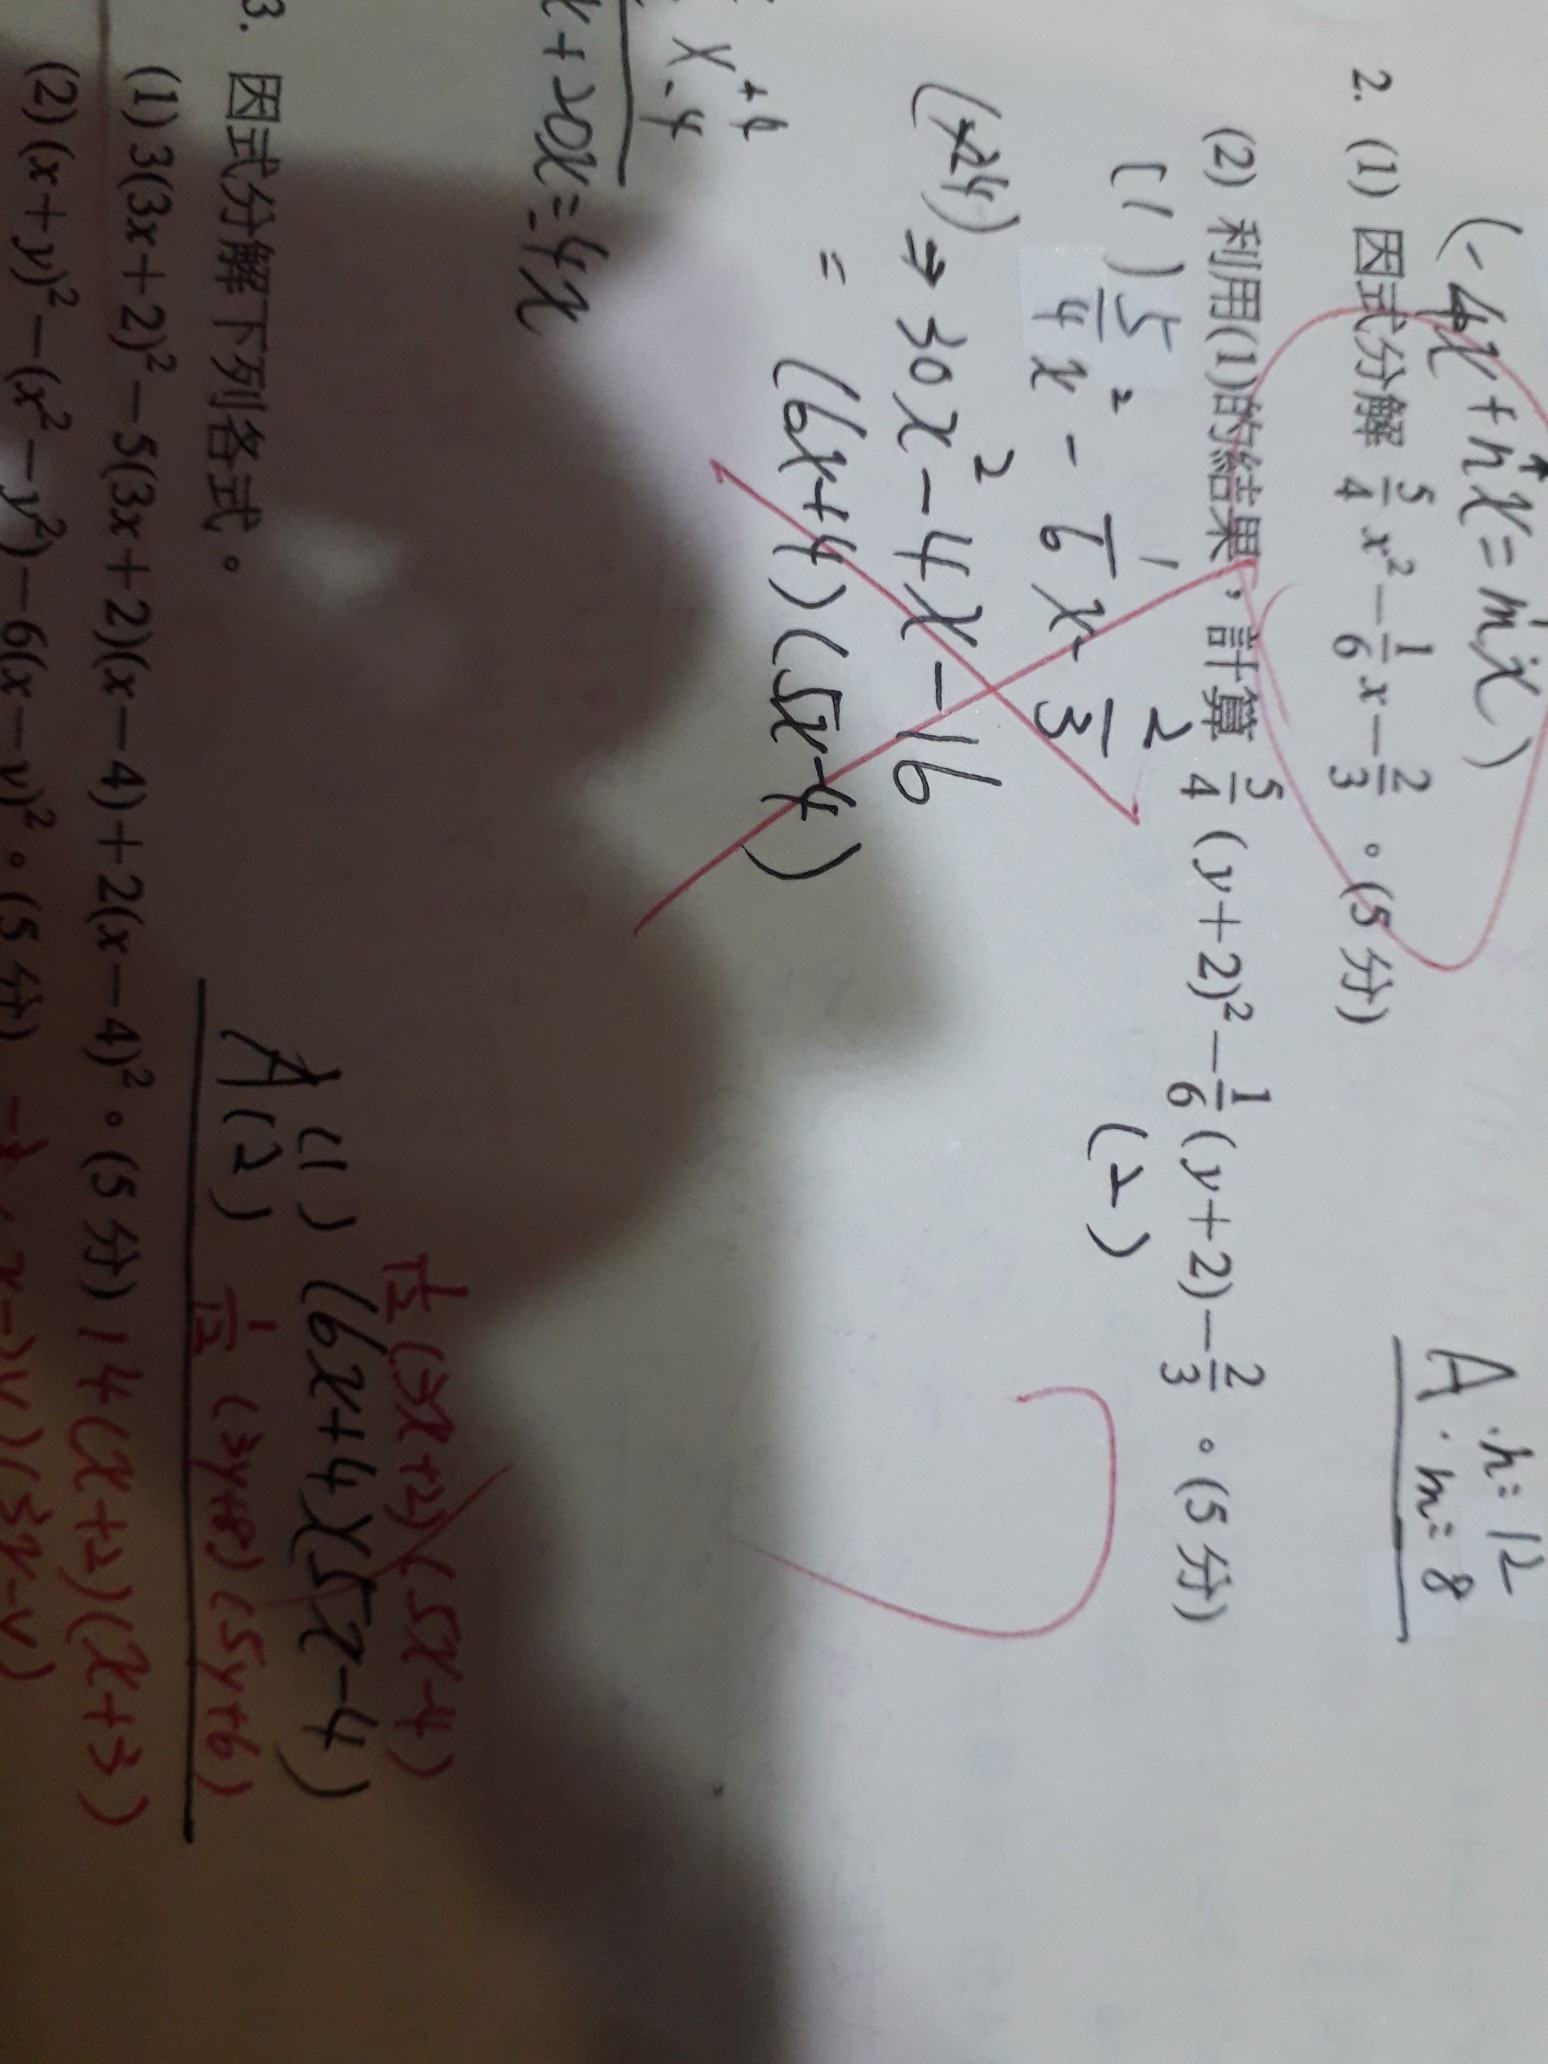 (-4x+nx=mx)
2. (1) 因式分解 5/4 x²－1/6 x－2/3。(5 分)
A . n=12
. m=8
(2) 利用(1)的結果，計算 5/4 (y＋2)²－1/6 (y＋2)－2/3。(5 分)
(1) 5/4 x² - 1/6 x - 2/3
(2)
(×24) ⇒ 30x² - 4x - 16
= (6x+4)(5x-4)
x +4
-4
x+20x=-4x
1/12 (3x+2)(5x-4)
A (1) (6x+4)(5x-4)
(2) 1/12 (3y+8)(5y+6)
3. 因式分解下列各式。
(1) 3(3x＋2)²－5(3x＋2)(x－4)＋2(x－4)²。(5 分) 14(x+2)(x+3)
(2) (x＋y)²－(x²－y²)－6(x－y)²。(5 分)